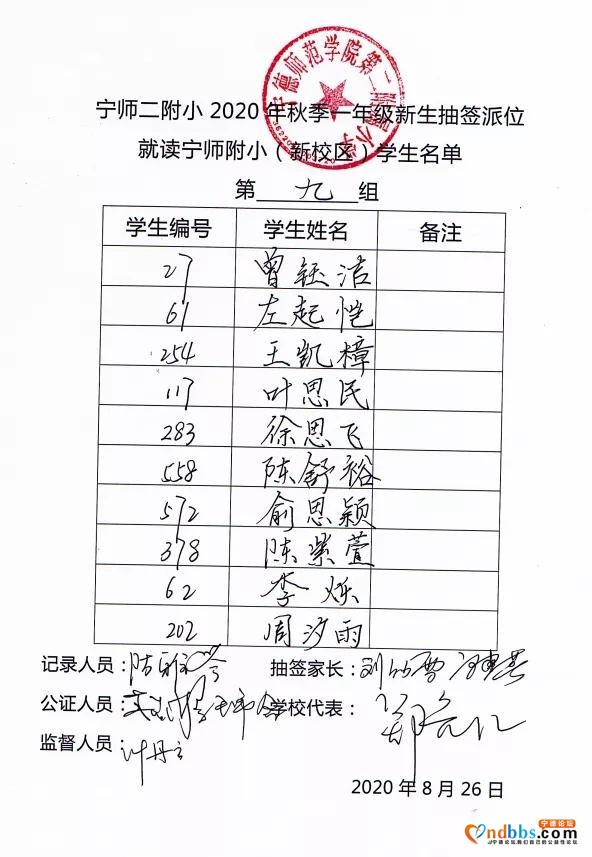 宁德师范学院第二附属小学
宁师二附小 2020 年秋季一年级新生抽签派位
就读宁师附小（新校区）学生名单
第 九 组
学生编号 学生姓名 备注
27 曾钰洁
61 左起恺
254 王凯樟
117 叶思民
283 徐思飞
558 陈舒裕
572 俞思颖
378 陈紫萱
62 李烁
202 周汐雨
记录人员： 抽签家长：
公证人员： 学校代表：
监督人员：
2020 年 8 月 26 日
ndbbs.com 宁德论坛
宁德论坛我们自己的公益性论坛